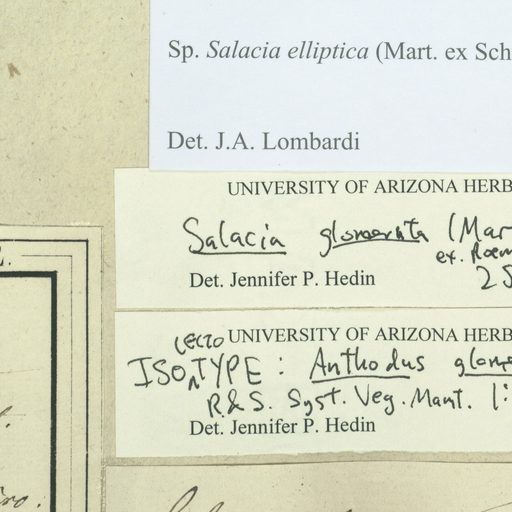 Sp. Salacia elliptica (Mart. ex Sch
Det. J.A. Lombardi
UNIVERSITY OF ARIZONA HERB
Salacia glomerata (Mar
ex. Roem
Det. Jennifer P. Hedin 25
LECTO UNIVERSITY OF ARIZONA HERB
ISO^TYPE: Anthodus glome
R.&S. Syst. Veg. Mant. 1:
Det. Jennifer P. Hedin